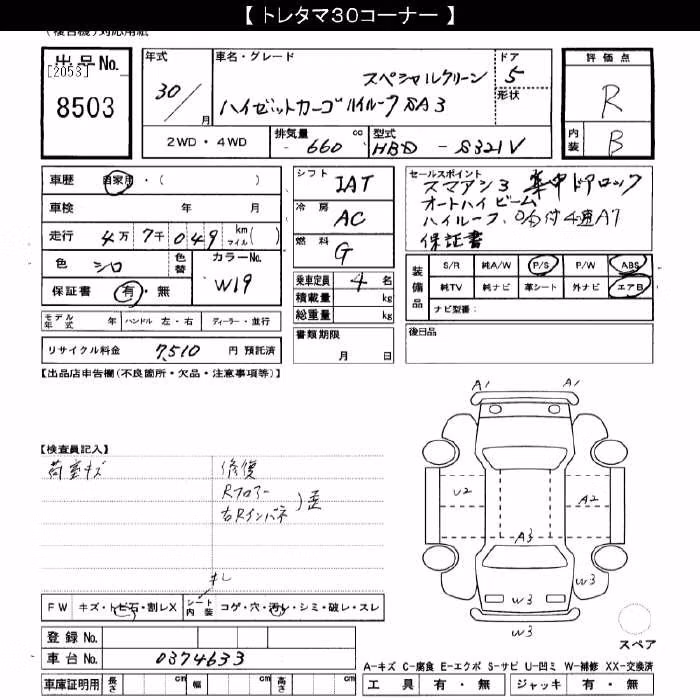 【 トレタマ30コーナー 】
(複合機)対応用紙
出品No.
[2053]
8503
年式
30/
月
車名・グレード
スペシャルクリーン
ハイゼットカーゴ ハイルーフ SA3
ドア
5
形状
2WD・4WD
排気量
660
cc
型式
HBD-S321V
評価点
R
内装
B
車歴 自家用・( )
車検 年 月
走行 4万7千049 km マイル( )
色 シロ
色替
カラーNo.
W19
保証書 有・無
シフト
IAT
冷房
AC
燃料
G
乗車定員 4 名
積載量 kg
総重量 kg
書類期限
月 日
セールスポイント
スマアシ3 集中ドアロック
オートハイビーム
ハイルーフ
4速AT
保証書
装備品
S/R 純A/W P/S P/W ABS
純TV 純ナビ 革シート 外ナビ エアB
ナビ型番:
後日品
モデル年式 年 ハンドル 左・右 ディーラー・並行
リサイクル料金 7,510 円 預託済
【出品店申告欄(不良箇所・欠品・注意事項等)】
【検査員記入】
荷室キズ
修復
Rフロアー
右Rインパネ
)歪
キレ
FW キズ・トビ石・割レX
シート内装 コゲ・穴・汚レ・シミ・破レ・スレ
登録 No.
車台 No. 0374633
車庫証明用 長さ cm 幅 cm 高さ cm
A1 A1
U2 A2
A3
W3
W3
W3
スペア
A-キズ C-腐食 E-エクボ S-サビ U-凹ミ W-補修 XX-交換済
工具 有・無 ジャッキ 有・無